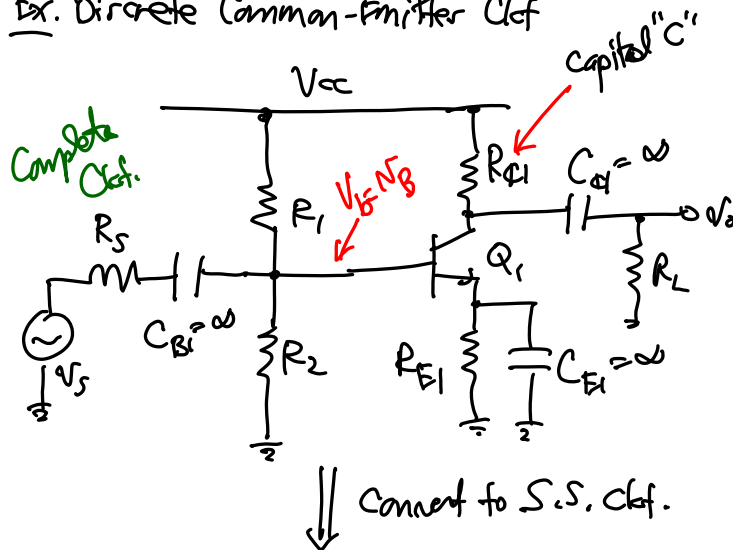 Ex. Discrete Common-Emitter Ckt
Capital "C"
Vcc
Complete
Ckt.
R1
RC1
CC1=∞
Vb=VB
RS
Q1
RL
CB1=∞
R2
RE1
CE1=∞
vs
Convert to S.S. Ckt.